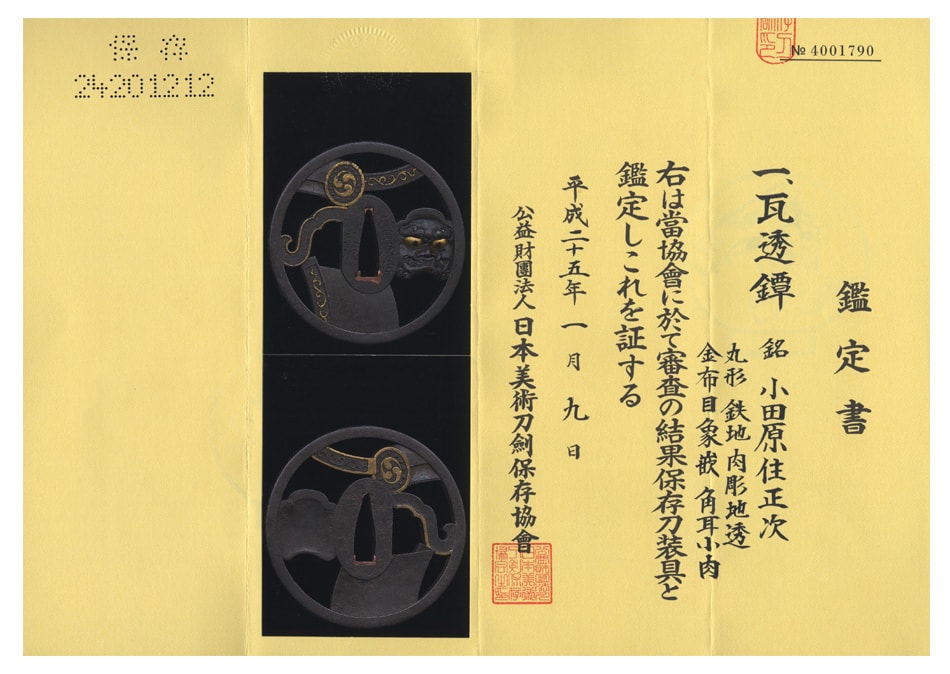 № 4001790
鑑定書
一、瓦透鐔 銘 小田原住正次
丸形 鉄地 肉彫地透
金布目象嵌 角耳小肉
右は當協會に於て審査の結果保存刀装具と
鑑定しこれを証する
平成二十五年一月九日
公益財團法人 日本美術刀劍保存協會
保存
24201212